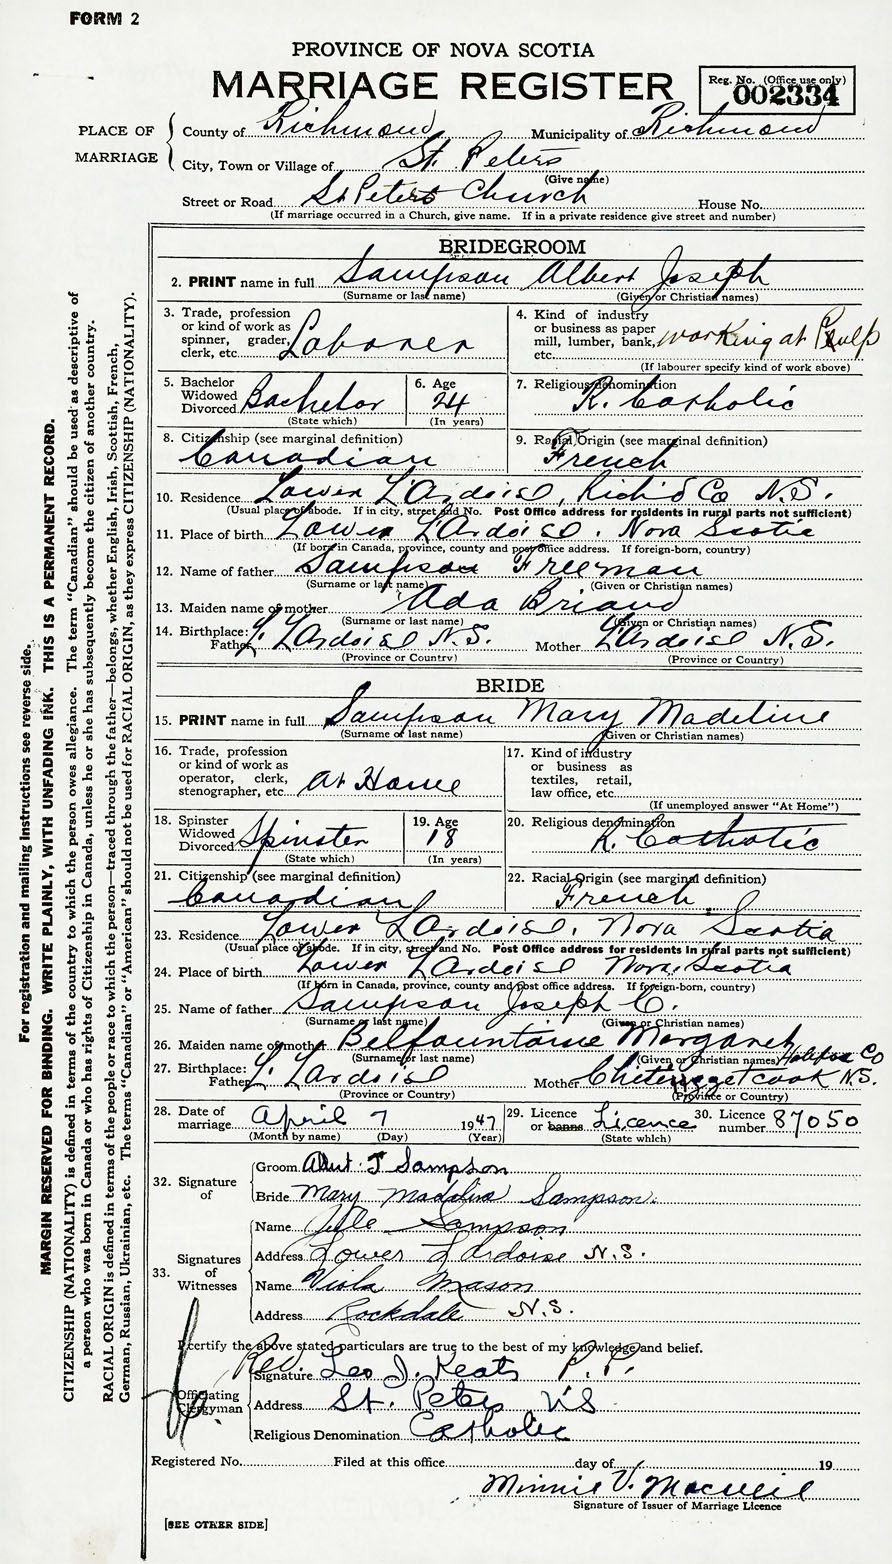 FORM 2
PROVINCE OF NOVA SCOTIA
MARRIAGE REGISTER
Reg. No. (Office use only)
002334
PLACE OF MARRIAGE
County of Richmond Municipality of Richmond
City, Town or Village of St. Peters
(Give name)
Street or Road St Peters Church House No.
(If marriage occurred in a Church, give name. If in a private residence give street and number)
BRIDEGROOM
2. PRINT name in full Sampson Albert Joseph
(Surname or last name) (Given or Christian names)
3. Trade, profession or kind of work as spinner, grader, clerk, etc. Laborer
4. Kind of industry or business as paper mill, lumber, bank, etc. working at Pulp
(If labourer specify kind of work above)
5. Bachelor Widowed Divorced Bachelor
(State which)
6. Age 24
(In years)
7. Religious denomination R. Catholic
8. Citizenship (see marginal definition) Canadian
9. Racial Origin (see marginal definition) French
10. Residence Lower L'Ardoise, Rich'd Co N.S.
(Usual place of abode. If in city, street and No. Post Office address for residents in rural parts not sufficient)
11. Place of birth Lower L'Ardoise. Nova Scotia
(If born in Canada, province, county and post office address. If foreign-born, country)
12. Name of father Sampson Freeman
(Surname or last name) (Given or Christian names)
13. Maiden name of mother Ada Briand
(Surname or last name) (Given or Christian names)
14. Birthplace: Father L. L'Ardoise N.S. Mother L'Ardoise N.S.
(Province or Country) (Province or Country)
BRIDE
15. PRINT name in full Sampson Mary Madeline
(Surname or last name) (Given or Christian names)
16. Trade, profession or kind of work as operator, clerk, stenographer, etc. At Home
17. Kind of industry or business as textiles, retail, law office, etc.
(If unemployed answer "At Home")
18. Spinster Widowed Divorced Spinster
(State which)
19. Age 18
(In years)
20. Religious denomination R. Catholic
21. Citizenship (see marginal definition) Canadian
22. Racial Origin (see marginal definition) French.
23. Residence Lower L'Ardoise, Nova Scotia
(Usual place of abode. If in city, street and No. Post Office address for residents in rural parts not sufficient)
24. Place of birth Lower L'Ardoise Nova Scotia
(If born in Canada, province, county and post office address. If foreign-born, country)
25. Name of father Sampson Joseph C.
(Surname or last name) (Given or Christian names)
26. Maiden name of mother Belfountaine Margaret
(Surname or last name) (Given or Christian names) Halifax Co
27. Birthplace: Father L. L'Ardoise Mother Chetezzetcook N.S.
(Province or Country) (Province or Country)
28. Date of marriage April 7 1947
(Month by name) (Day) (Year)
29. Licence or banns Licence
(State which)
30. Licence number 87050
32. Signature of
Groom Albert J Sampson
Bride Mary Madeline Sampson.
33. Signatures of Witnesses
Name Sampson
Address Lower L'Ardoise N.S.
Name Viola Mason
Address Rockdale N.S.
I certify the above stated particulars are true to the best of my knowledge and belief.
Officiating Clergyman
Signature Rev. Leo J. Keats P.P.
Address St. Peters N S
Religious Denomination Catholic
Registered No. Filed at this office day of 19
Minnie V. MacNeil
Signature of Issuer of Marriage Licence
[SEE OTHER SIDE]
For registration and mailing instructions see reverse side.
MARGIN RESERVED FOR BINDING. WRITE PLAINLY, WITH UNFADING INK. THIS IS A PERMANENT RECORD.
CITIZENSHIP (NATIONALITY) is defined in terms of the country to which the person owes allegiance. The term "Canadian" should be used as descriptive of
a person who was born in Canada or who has rights of Citizenship in Canada, unless he or she has subsequently become the citizen of another country.
RACIAL ORIGIN is defined in terms of the people or race to which the person—traced through the father—belongs, whether English, Irish, Scottish, French,
German, Russian, Ukrainian, etc. The terms "Canadian" or "American" should not be used for RACIAL ORIGIN, as they express CITIZENSHIP (NATIONALITY).